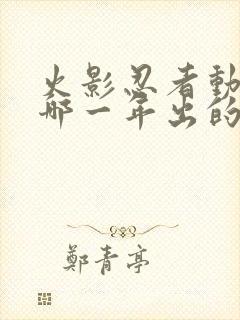 火影忍者動
哪一年出的
鄭青亭